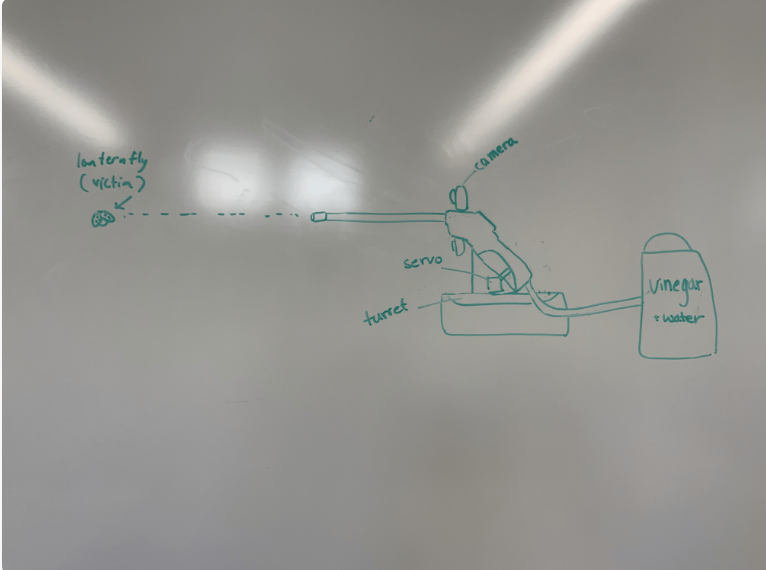 lanternfly
(victim)
camera
servo
turret
Vinegar
+ water